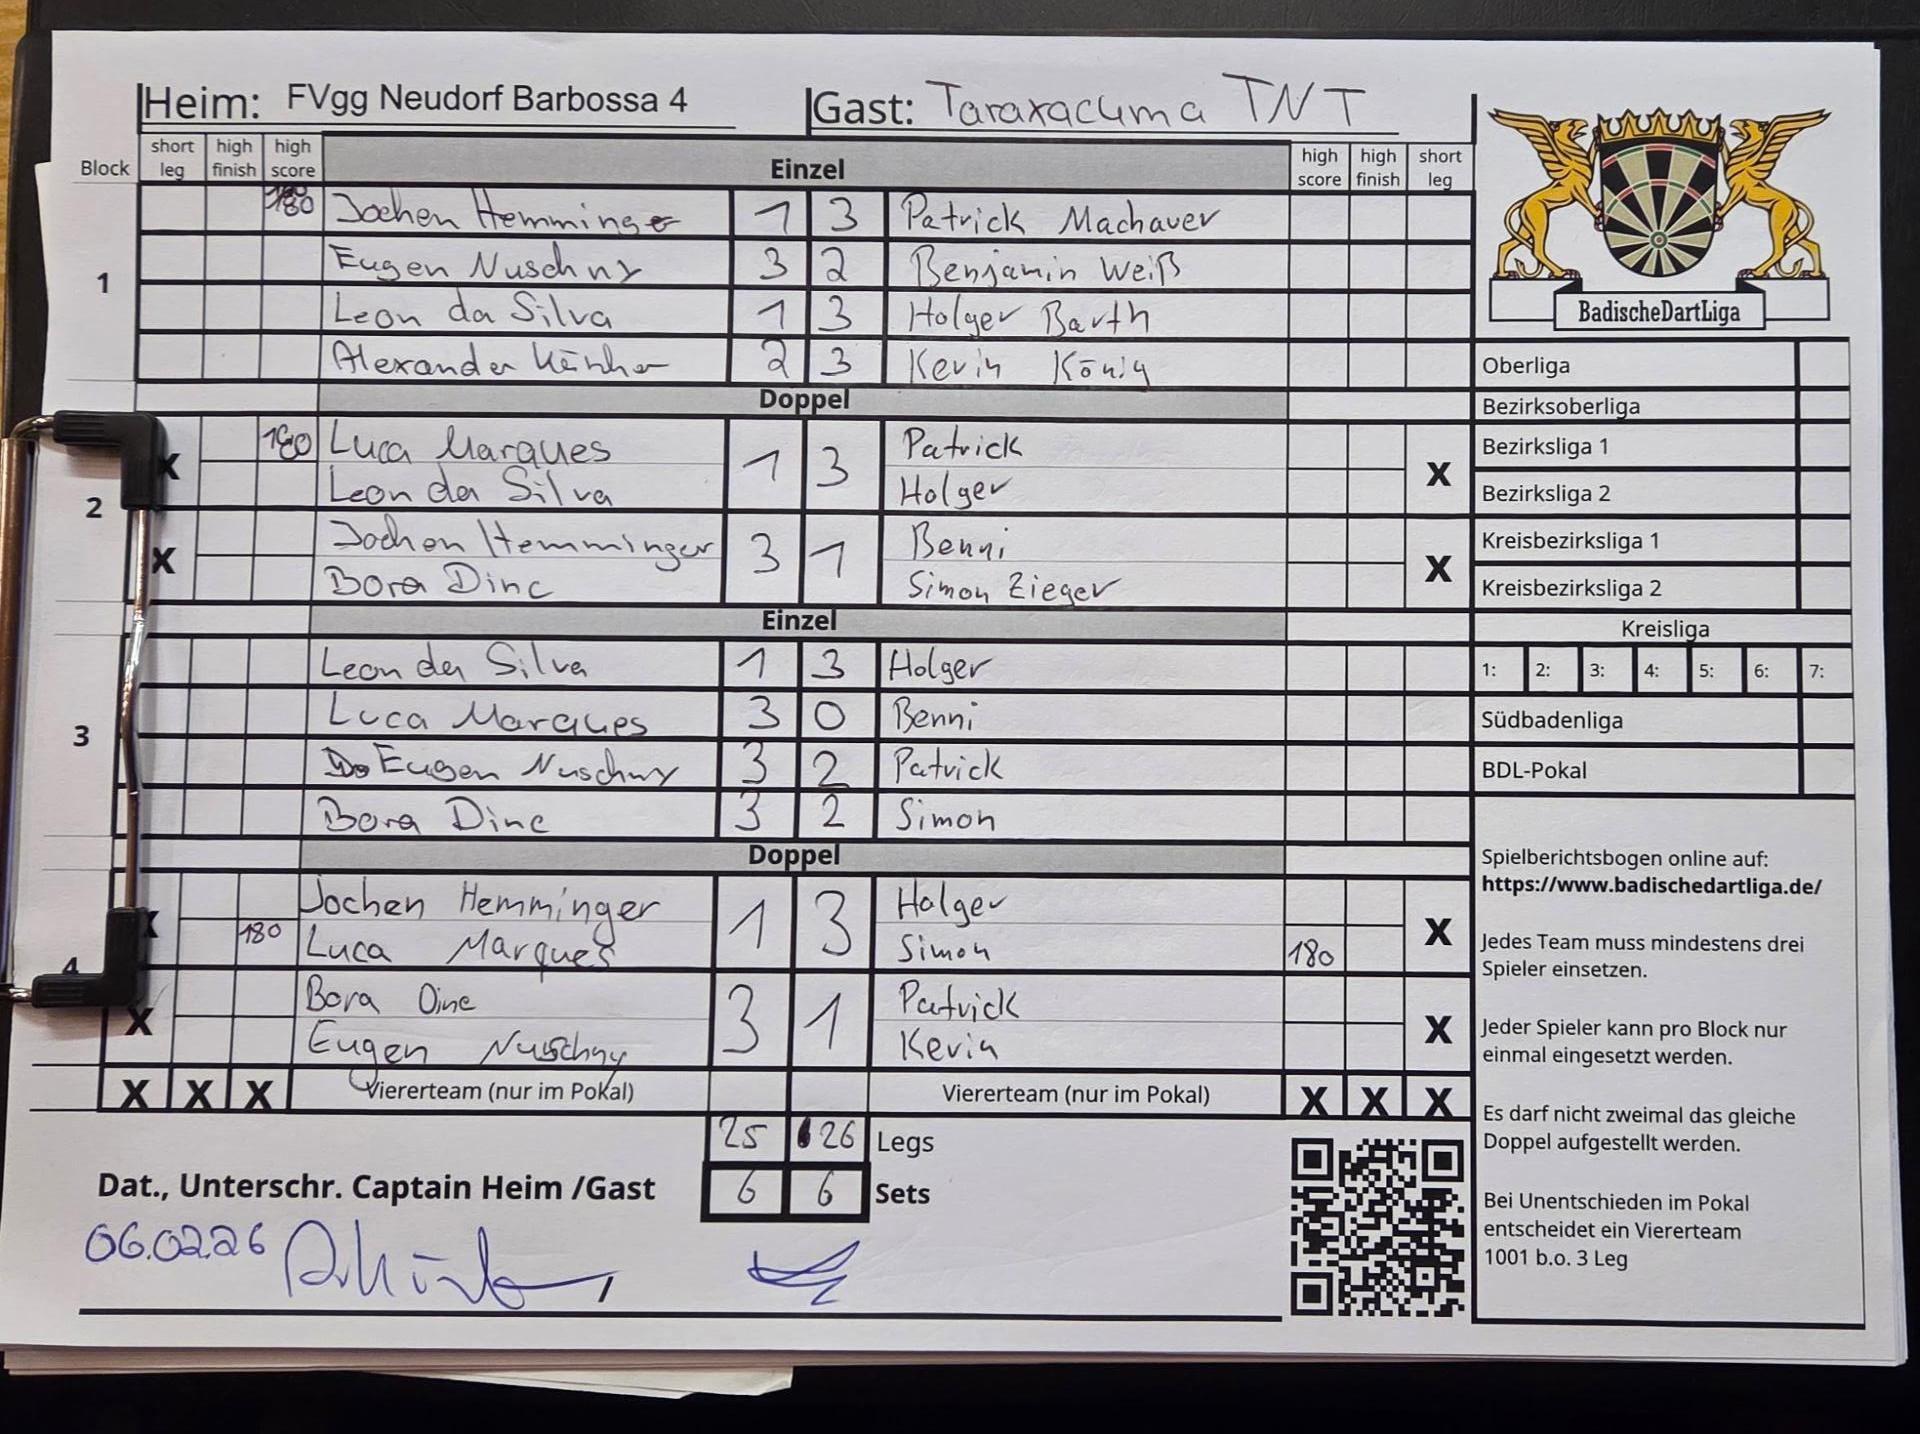 Heim: FVgg Neudorf Barbossa 4 Gast: Taraxacuma TNT
Block short leg high finish high score Einzel high score high finish short leg
1
180 Jochen Hemminge 1 3 Patrick Machauer
Eugen Nuschny 3 2 Benjamin Weiß
Leon da Silva 1 3 Holger Barth
Alexander 2 3 Kevin König
Doppel
2
X 180 Luca Marques 1 3 Patrick X
Leon da Silva Holger
X Jochen Hemminger 3 1 Benni X
Bora Dinc Simon Zieger
Einzel
3
Leon da Silva 1 3 Holger
Luca Marques 3 0 Benni
Eugen Nuschny 3 2 Patrick
Bora Dinc 3 2 Simon
Doppel
4
X Jochen Hemminger 1 3 Holger X
180 Luca Marques Simon 180
X Bora Dinc 3 1 Patrick X
Eugen Nuschny Kevin
X X X Viererteam (nur im Pokal) Viererteam (nur im Pokal) X X X
25 26 Legs
6 6 Sets
Dat., Unterschr. Captain Heim /Gast
06.02.26
BadischeDartLiga
Oberliga
Bezirksoberliga
Bezirksliga 1
Bezirksliga 2
Kreisbezirksliga 1
Kreisbezirksliga 2
Kreisliga
1: 2: 3: 4: 5: 6: 7:
Südbadenliga
BDL-Pokal
Spielberichtsbogen online auf:
https://www.badischedartliga.de/
Jedes Team muss mindestens drei
Spieler einsetzen.
Jeder Spieler kann pro Block nur
einmal eingesetzt werden.
Es darf nicht zweimal das gleiche
Doppel aufgestellt werden.
Bei Unentschieden im Pokal
entscheidet ein Viererteam
1001 b.o. 3 Leg